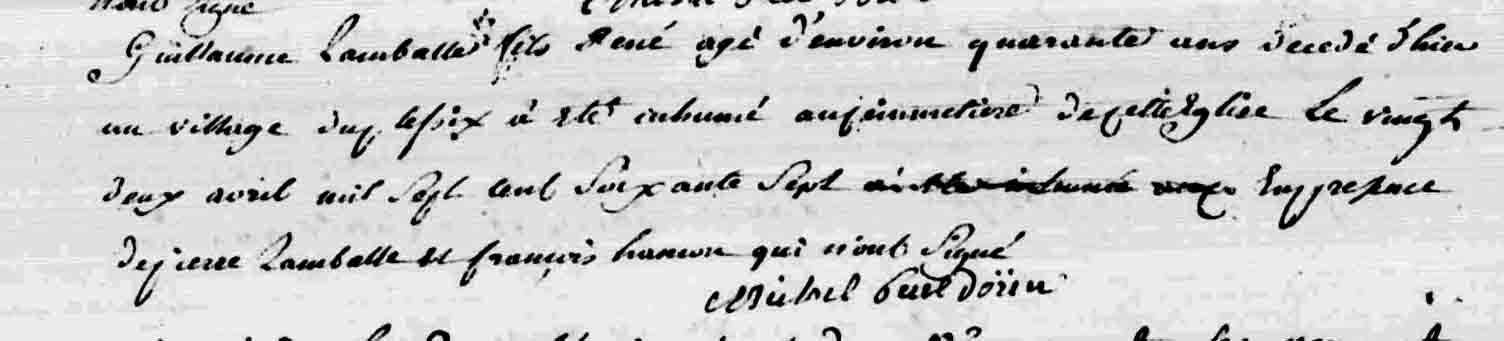 nont signé
Guillaume Lamballe fils René agé d'environ quarante ans decedé d'hier
au village duplessix a eté inhumé aucimmetiere decette Eglise le vingt
deux avril mil sept cent soixante sept a eté inhumé aux En presence
depierre Lamballe et françois hamon qui n'ont signé
Michel